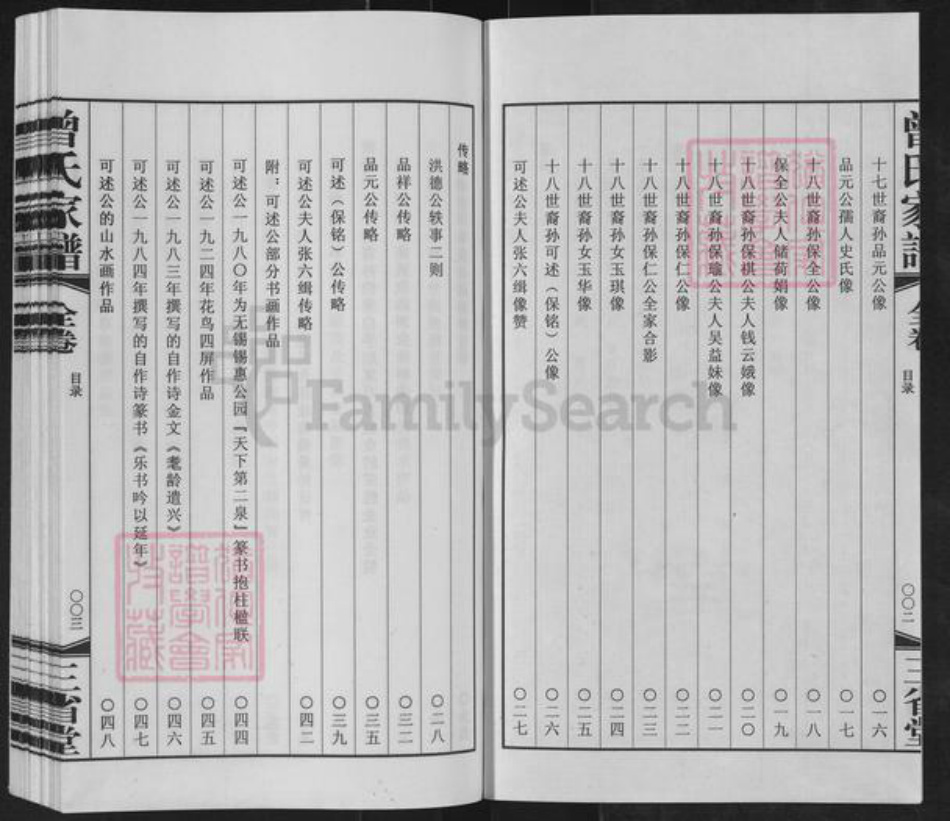 曾氏家谱 全卷 目录 〇〇二 三省堂
十七世裔孙品元公像 〇一六
品元公孺人史氏像 〇一七
十八世裔孙保全公像 〇一八
保全公夫人储荷娟像 〇一九
十八世裔孙保棋公夫人钱云娥像 〇二〇
十八世裔孙保瑜公夫人吴益妹像 〇二一
十八世裔孙保仁公像 〇二二
十八世裔孙保仁公全家合影 〇二三
十八世裔孙女玉琪像 〇二四
十八世裔孙女玉华像 〇二五
十八世裔孙可述（保铭）公像 〇二六
可述公夫人张六缉像赞 〇二七
传略
洪德公轶事二则 〇二八
品祥公传略 〇三二
品元公传略 〇三五
可述（保铭）公传略 〇三九
可述公夫人张六缉传略 〇四二
附：可述公部分书画作品
可述公一九八〇年为无锡锡惠公园『天下第二泉』篆书抱柱楹联 〇四四
可述公一九二四年花鸟四屏作品 〇四五
可述公一九八三年撰写的自作诗金文《耄龄遣兴》 〇四六
可述公一九八四年撰写的自作诗篆书《乐书吟以延年》 〇四七
可述公的山水画作品 〇四八
曾氏家谱 全卷 目录 〇〇三 三省堂
FamilySearch